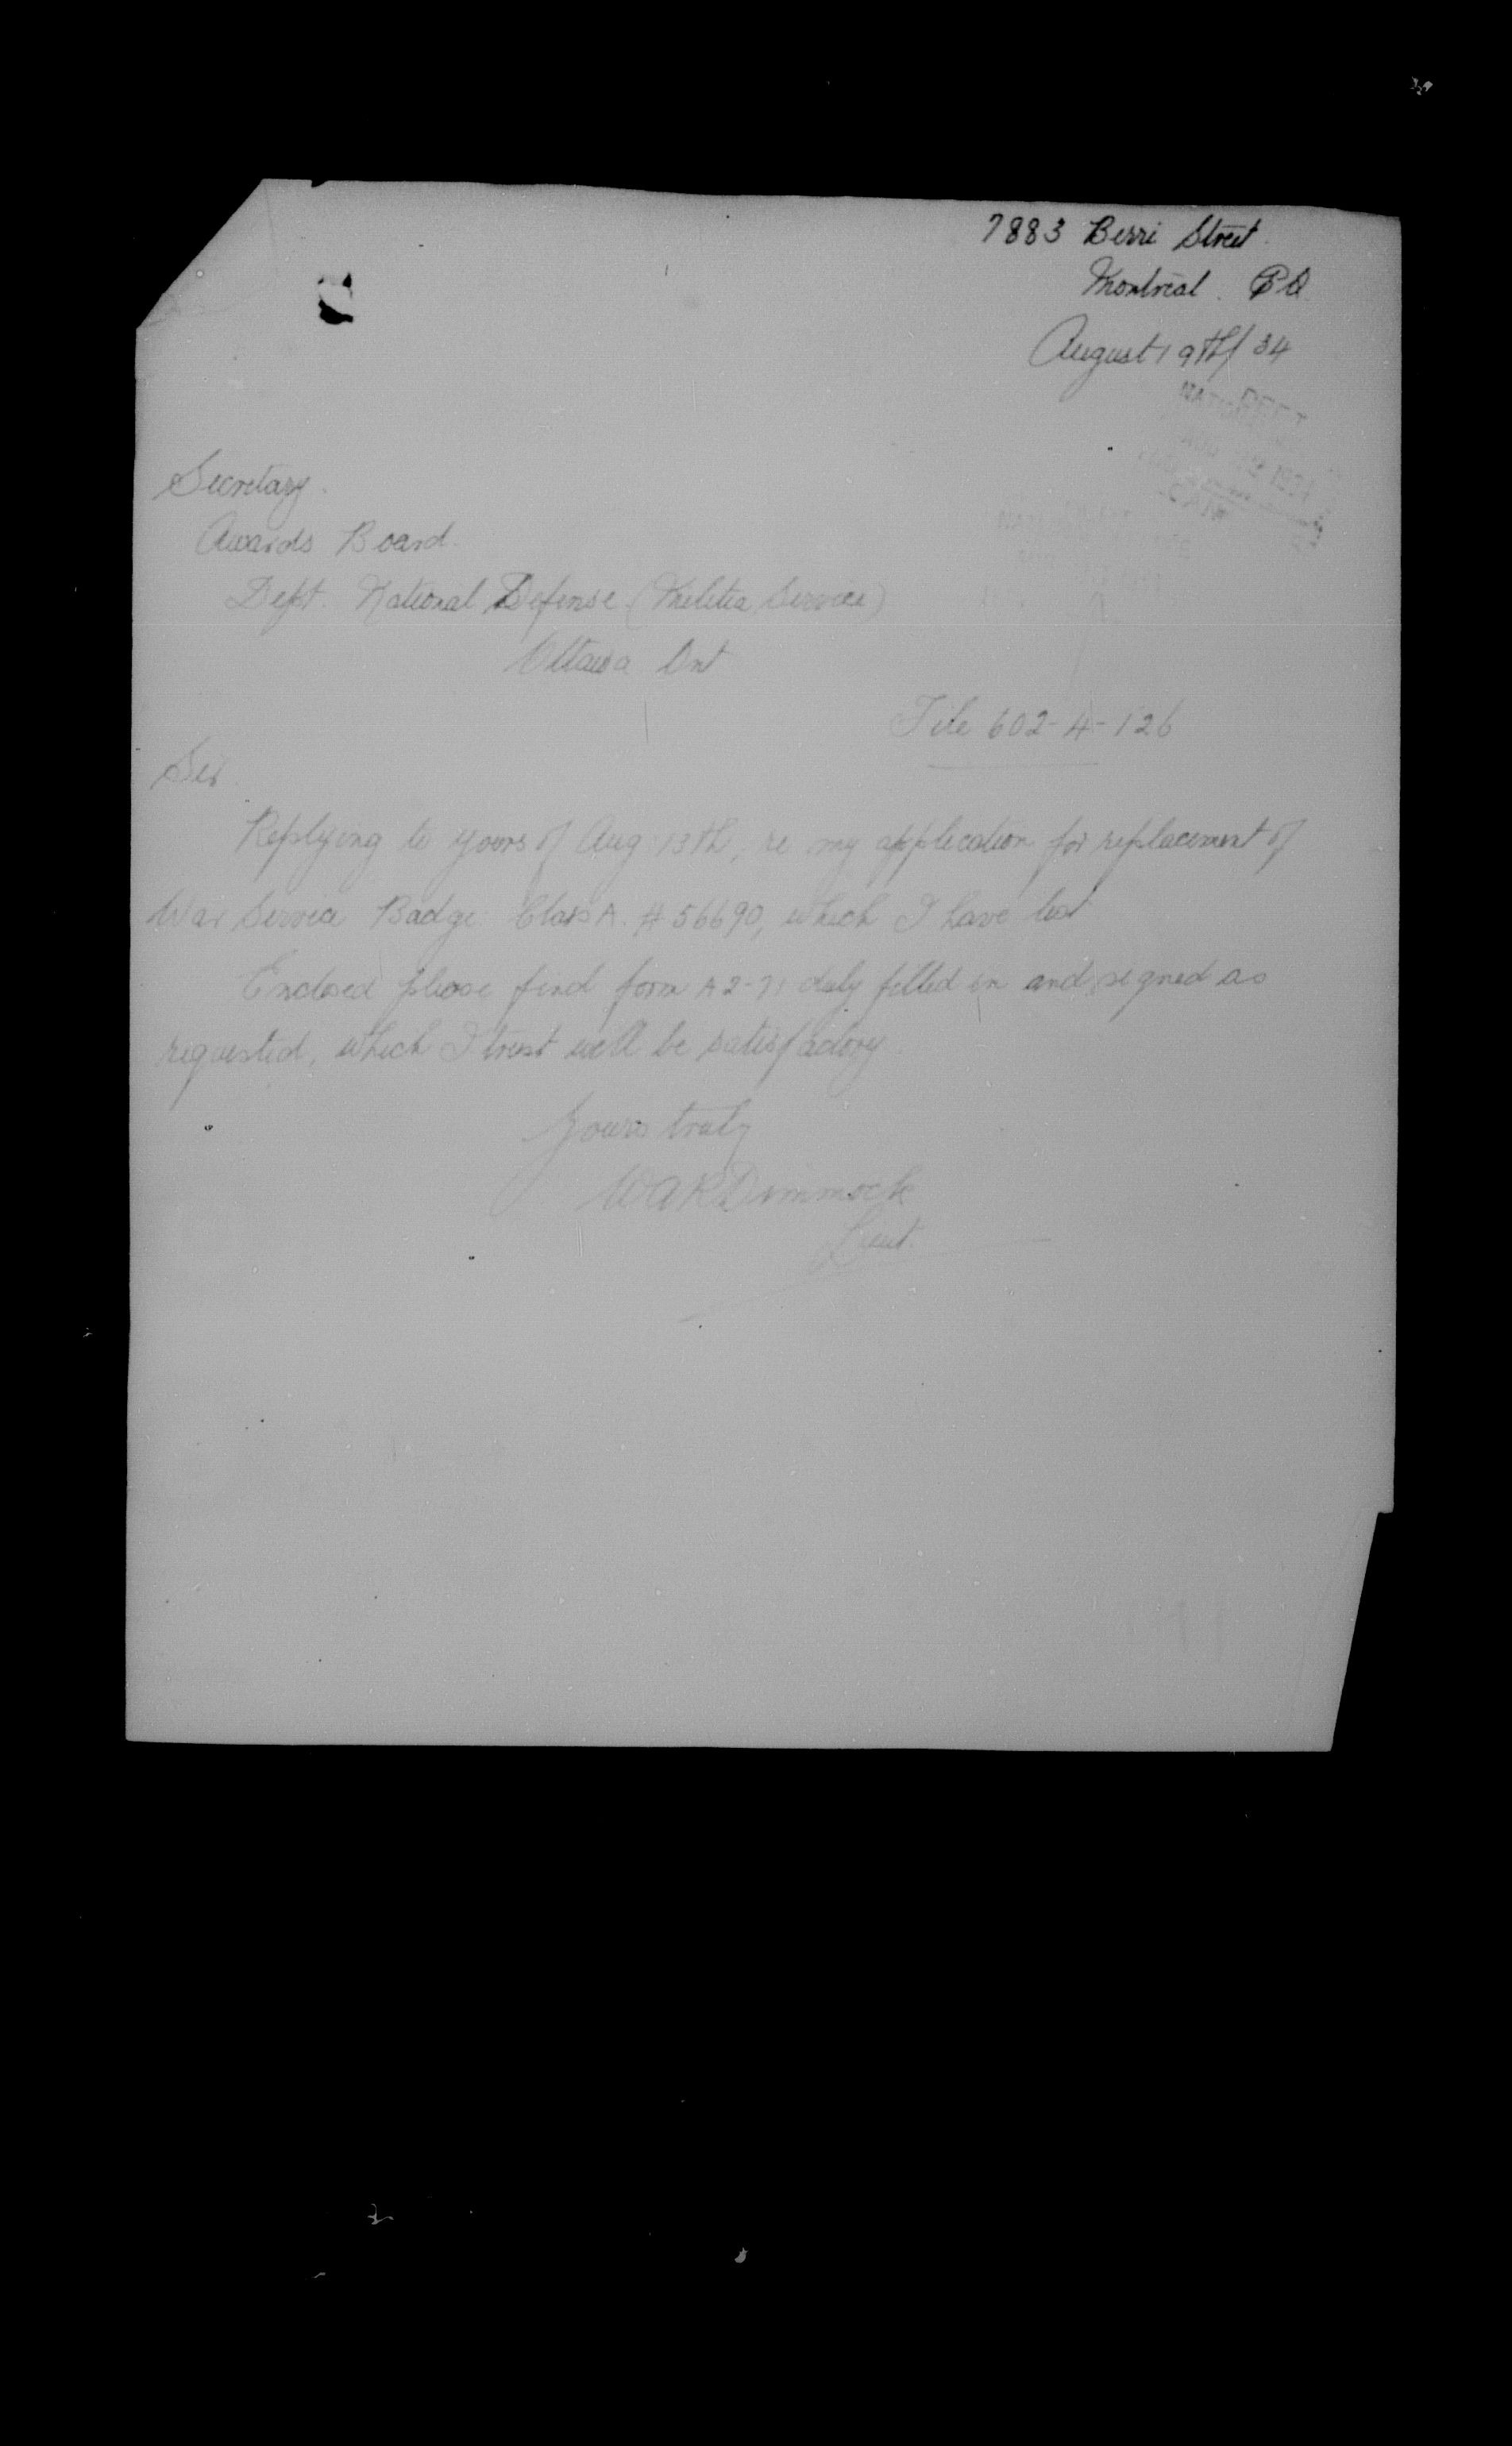 7883 Berri Street
Montreal. P.Q.
August 19th/34
Secretary.
Awards Board.
Dept. National Defense (Militia Service)
Ottawa Ont
File 602-4-126
Sir
Replying to yours of Aug 13th, re my application for replacement of
War Service Badge Class A. #56690, which I have lost
Enclosed please find form A2-71 duly filled in and signed as
requested, which I trust will be satisfactory
Yours truly
WAR Dimmock
Lieut.